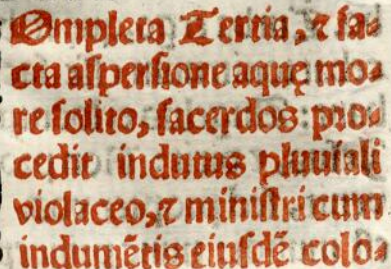 Ompleta Tertia, ⁊ fa⸗
cta aſperſione aquę mo⸗
re ſolito, ſacerdos pro⸗
cedit indutus pluuiali
violaceo, ⁊ miniſtri cum
indumētis eiuſdē colo⸗